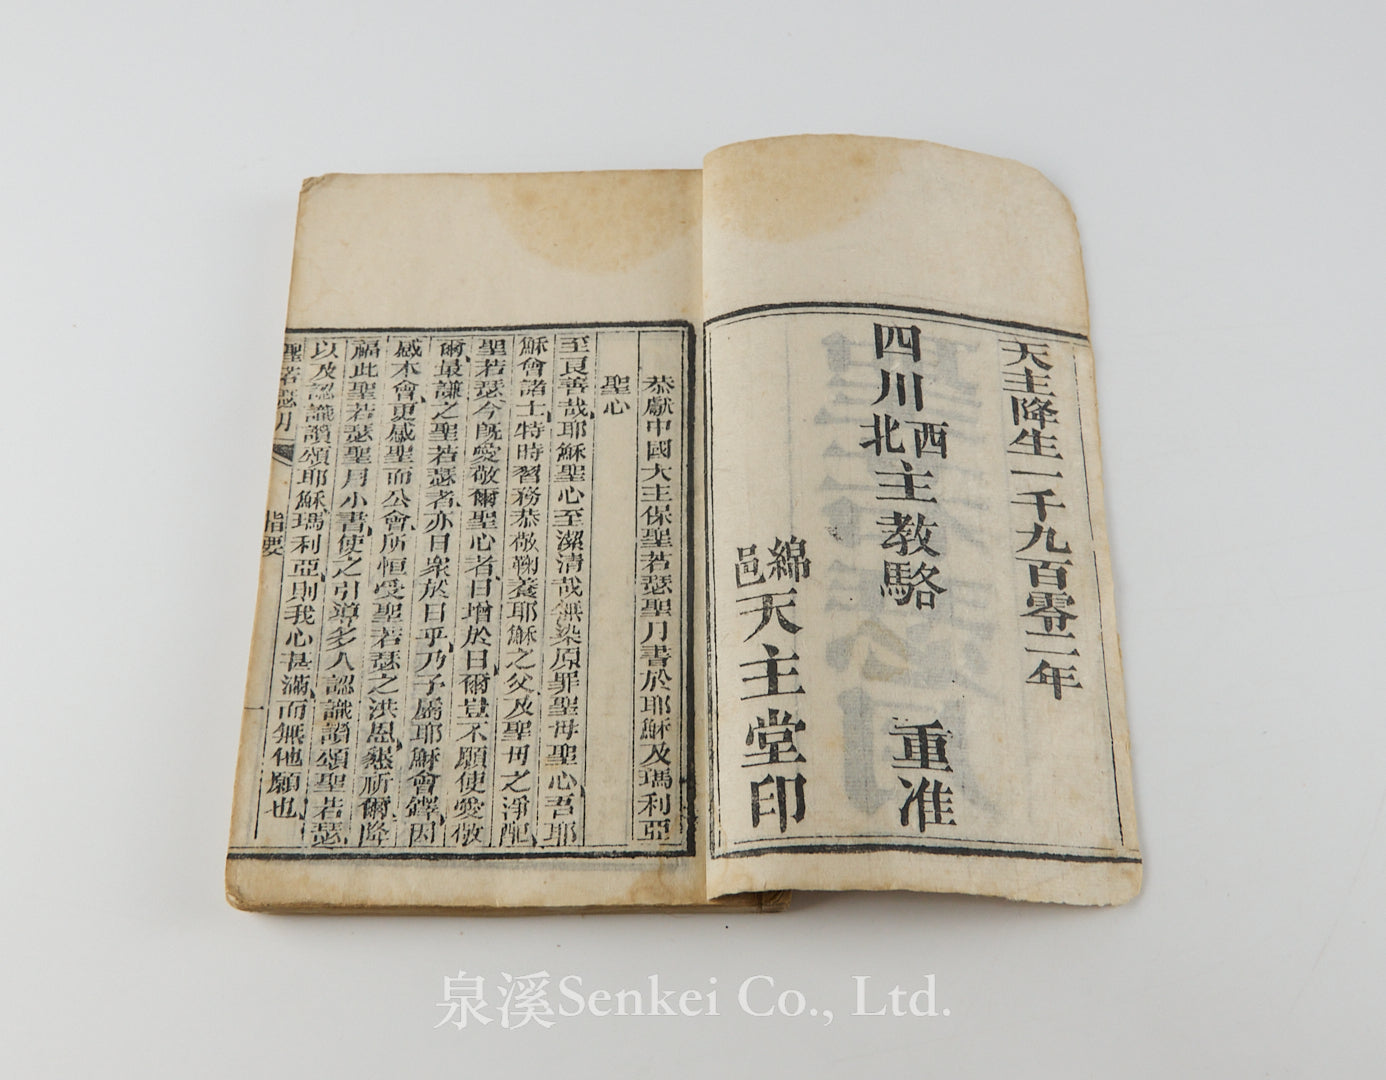 天主降生一千九百零二年
四川西北主教駱　重准
綿邑天主堂印
恭獻中國大主保聖若瑟聖月書於耶穌及瑪利亞
聖心
至良善哉耶穌聖心至潔清哉無染原罪聖母聖心吾耶
穌會諸士特時習務恭敬鞠養耶穌之父及聖母之淨配
聖若瑟今既愛敬爾聖心者日增於日爾豈不願使愛敬
爾最謙之聖若瑟者亦日衆於日乎乃予屬耶穌會鐸因
感本會更感聖而公會所恒受聖若瑟之洪恩懇祈爾降
福此聖若瑟聖月小書使之引導多人認識讚頌聖若瑟
以及認識讚頌耶穌瑪利亞則我心甚滿而無他願也
聖若瑟月　指要　一
泉溪Senkei Co., Ltd.